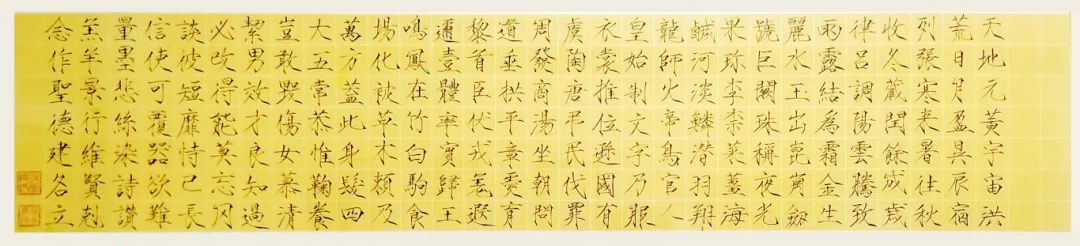 天地元黄宇宙洪
荒日月盈昃辰宿
列張寒来暑往秋
收冬蔵閏餘成歲
律吕調陽雲騰致
雨露結為霜金生
麗水玉出崑崗劔
號巨闕珠稱夜光
果珎李柰菜薑海
鹹河淡鱗潛羽翔
龍師火帝鳥官人
皇始制文字乃服
衣裳推位遜國有
虞陶唐弔民伐罪
周發商湯坐朝問
道垂拱平章愛育
黎首臣伏戎羌遐
邇壹體率賓歸王
鳴鳳在竹白駒食
場化被草木賴及
萬方蓋此身髮四
大五常恭惟鞠養
豈敢毀傷女慕清
絜男效才良知過
必改得能莫忘罔
談彼短靡恃己長
信使可覆器欲難
量墨悲絲染詩讃
羔羊景行維賢剋
念作聖德建名立